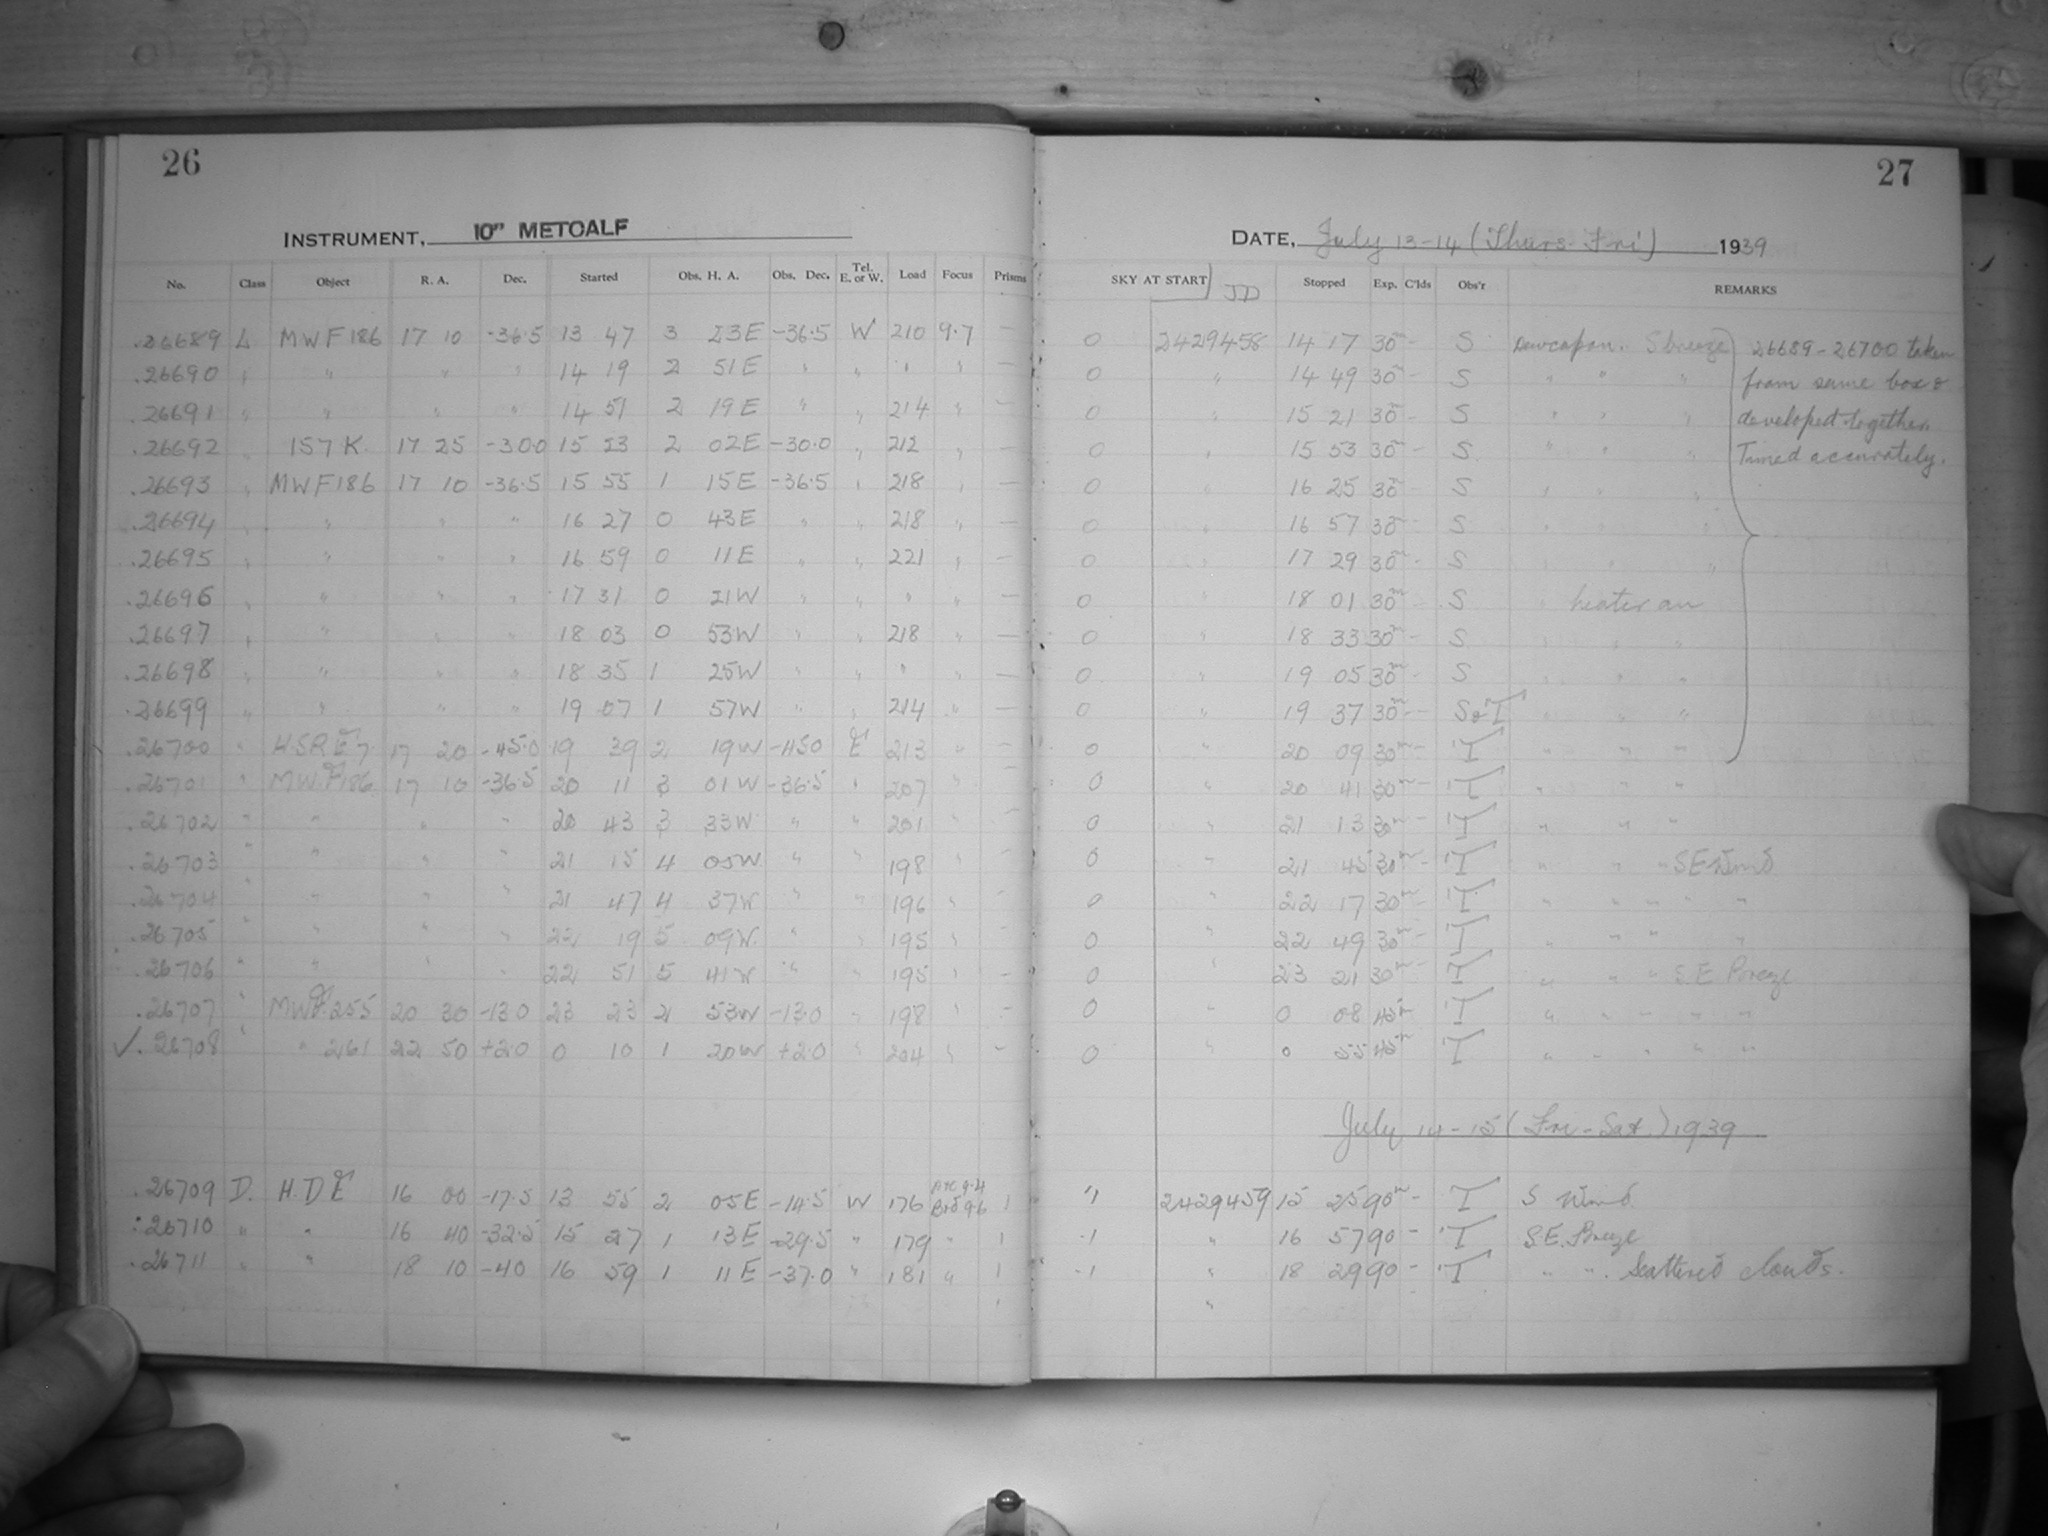 26
INSTRUMENT, 10" METCALF
No. Class Object R. A. Dec. Started Obs. H. A. Obs. Dec. Tel. E. or W. Load Focus Prisms
.26689 L MWF186 17 10 -36.5 13 47 3 23E -36.5 W 210 9.7 —
.26690 " " " " 14 19 2 51E " " " " —
.26691 " " " " 14 51 2 19E " " 214 " —
.26692 " 157K. 17 25 -30.0 15 23 2 02E -30.0 " 212 " —
.26693 " MWF186 17 10 -36.5 15 55 1 15E -36.5 " 218 " —
.26694 " " " " 16 27 0 43E " " 218 " —
.26695 " " " " 16 59 0 11E " " 221 " —
.26696 " " " " 17 31 0 21W " " " " —
.26697 " " " " 18 03 0 53W " " 218 " —
.26698 " " " " 18 35 1 25W " " " " —
.26699 " " " " 19 07 1 57W " " 214 " —
.26700 " 17 20 -45.0 19 39 2 19W -45.0 E 213 " —
.26701 " MWF186 17 10 -36.5 20 11 3 01W -36.5 " 207 " —
.26702 " " " " 20 43 3 33W " " 201 " —
.26703 " " " " 21 15 4 05W " " 198 " —
.26704 " " " " 21 47 4 37W " " 196 " —
.26705 " " " " 22 19 5 09W " " 195 " —
.26706 " " " " 22 51 5 41W " " 195 " —
.26707 " MWF.255 20 30 -13.0 23 23 2 53W -13.0 " 198 " —
✓.26708 " " 261 22 50 +2.0 0 10 1 20W +2.0 " 204 " —
.26709 D. H.D.E 16 00 -17.5 13 55 2 05E -14.5 W 176 9.4 9.6 1
:26710 " " 16 40 -32.5 15 27 1 13E -29.5 " 179 " 1
.26711 " " 18 10 -40 16 59 1 11E -37.0 " 181 " 1
27
DATE, July 13-14 (Thurs-Fri) 1939
SKY AT START JD Stopped Exp. C'lds Obs'r REMARKS
0 2429458 14 17 30m - S Dewcap on. S breeze 26689-26700 taken
0 " 14 49 30m - S " " " from same box &
0 " 15 21 30m - S " " " developed together.
0 " 15 53 30m - S " " " Timed accurately.
0 " 16 25 30m - S " " "
0 " 16 57 30m - S " " "
0 " 17 29 30m - S " " "
0 " 18 01 30m - S heater on
0 " 18 33 30m - S " " "
0 " 19 05 30m - S " " "
0 " 19 37 30m - S&T " " "
0 " 20 09 30m - T " " "
0 " 20 41 30m - T " " "
0 " 21 13 30m - T " " "
0 " 21 45 30m - T " " " SE Wind
0 " 22 17 30m - T " " " " "
0 " 22 49 30m - T " " " "
0 " 23 21 30m - T " " " S.E. Breeze
0 " 0 08 45m T " " " " "
0 " 0 55 45m T " " " " "
July 14-15 (Fri-Sat.) 1939
"1 2429459 15 25 90m - T S Wind
-1 " 16 57 90 - T S.E. Breeze
-1 " 18 29 90 - T " " . Scattered clouds.
"